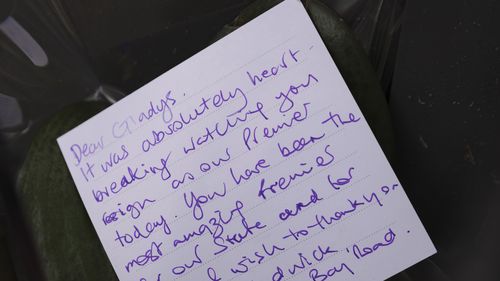 Dear Gladys.
It was absolutely heart-
breaking watching you
resign as our Premier
today. You have been the
most amazing Premier
for our State and for
I wish to thank you
dwick.
Bay Road.